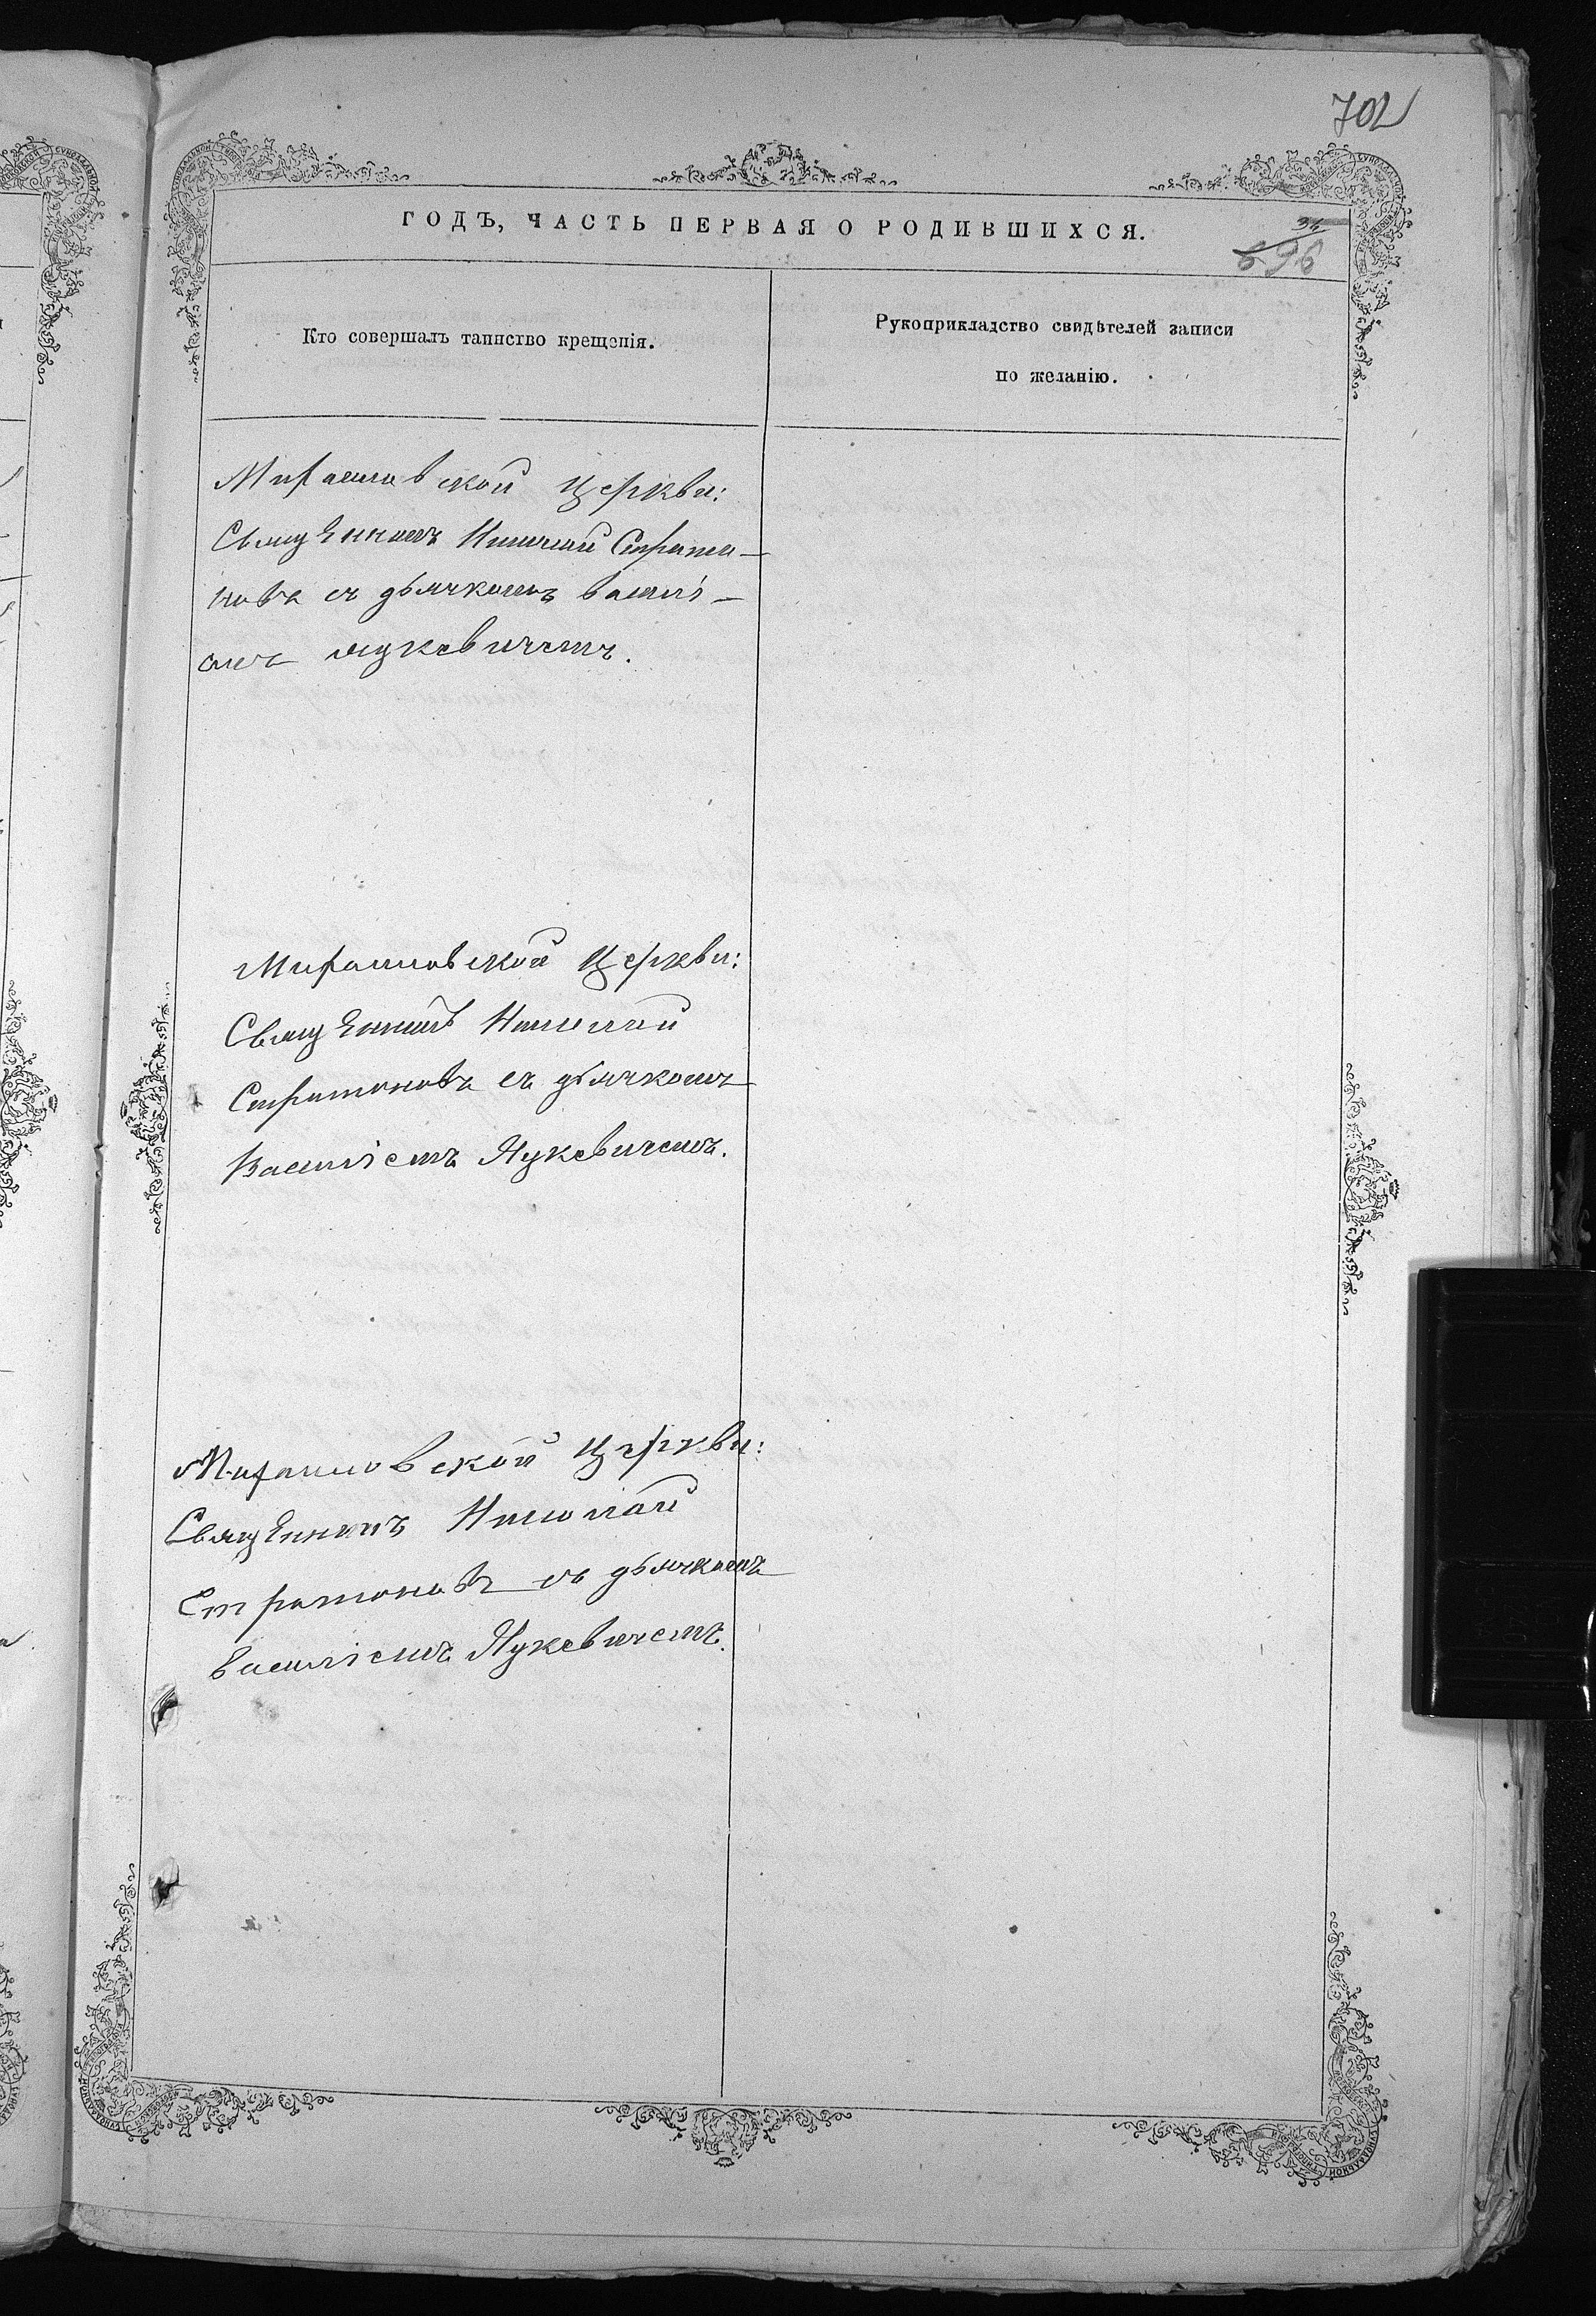 702
ГОДЪ, ЧАСТЬ ПЕРВАЯ О РОДИВШИХСЯ.
34
696
Кто совершалъ таинство крещенія.
Рукоприкладство свидѣтелей записи
по желанію.
Церкви:
Священникъ Николай Страто-
новъ съ дьячкомъ Василі-
емъ Яукевичемъ.
Церкви:
Священникъ Николай
Стратоновъ съ дьячкомъ
Василіемъ Яукевичемъ.
Церкви:
Священникъ Николай
Стратоновъ съ дьячкомъ
Василіемъ Яукевичемъ.